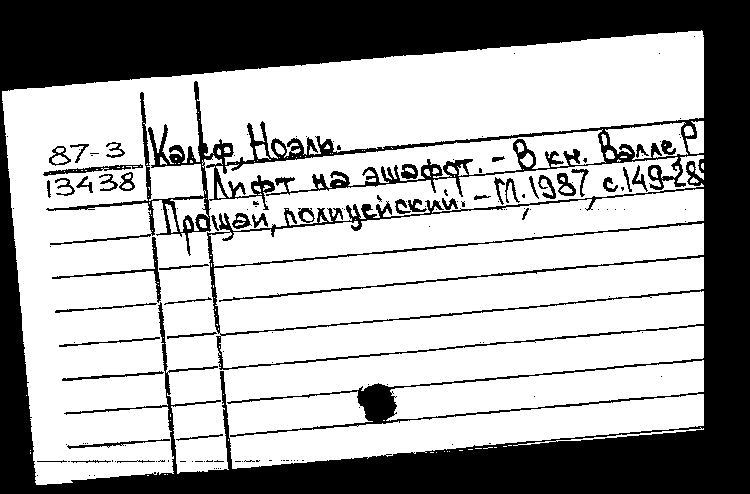 87-3
13438
Калеф, Ноэль.
Лифт на эшафот. - В кн. Валле Р
Прощай, полицейский! - М., 1987, с.149-289